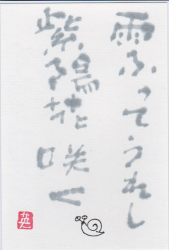 雨ふってうれし
紫陽花咲く